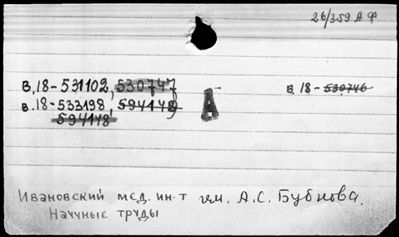 26/359 А Ф
В.18-531102, 530747,
В.18-533198, 594148,
594148
А
В.18-530746
Ивановский мед. ин-т им. А.С. Бубнова.
Научные труды